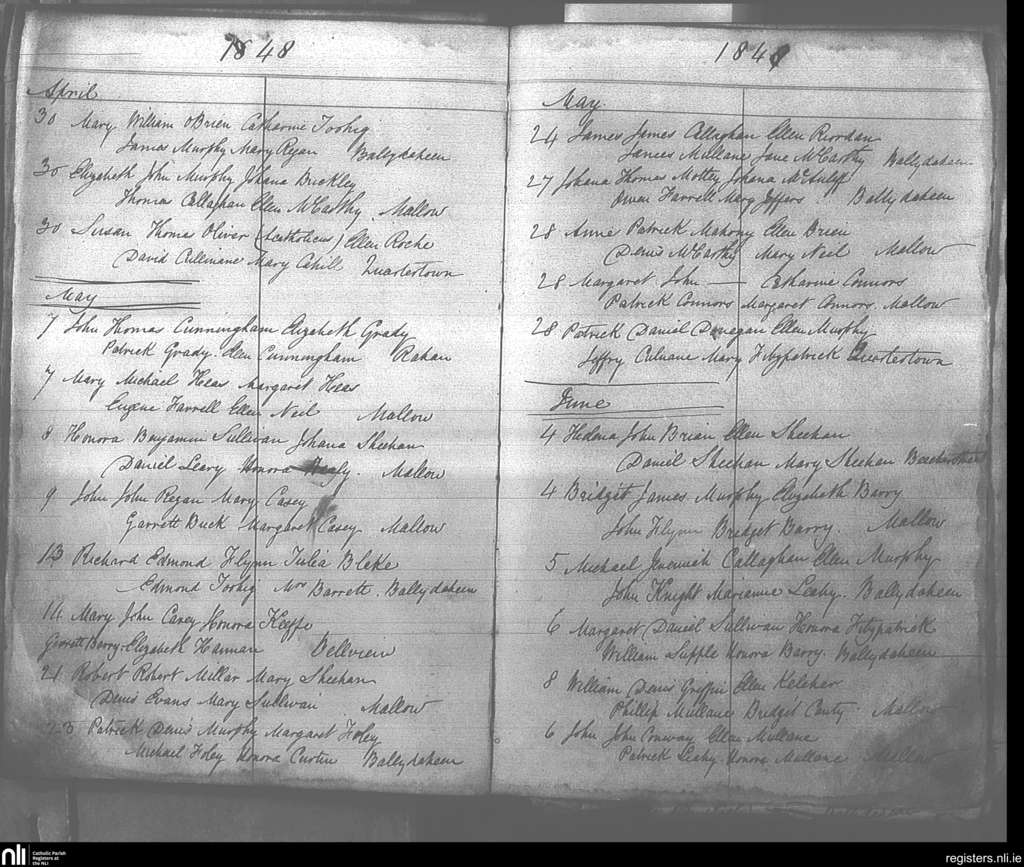 1848
April
30 Mary William OBrien Catharine Toohig
James Murphy Mary Ryan Ballydaheen
30 Elizabeth John Murphy Johana Buckley
Thomas Callaghan Ellen McCarthy Mallow
30 Susan Thomas Oliver (Acatholicus) Ellen Roche
David Cullinane Mary Cahill Quartertown
May
7 John Thomas Cunningham Elizabeth Grady
Patrick Grady Ellen Cunningham Rahan
7 Mary Michael Heas Margaret Heas
Eugene Farrell Ellen Neil Mallow
8 Honora Benjamin Sullivan Johana Sheehan
Daniel Leary Honora Healy. Mallow
9 John John Regan Mary Casey
Garrett Buck Margaret Casey Mallow
13 Richard Edmond Flynn Julia Blake
Edmond Toohig Mr Barrett Ballydaheen
14 Mary John Carey Honora Keeffe
Garrett Barry Elizabeth Hannan Dellview
21 Robert Robert Millar Mary Sheehan
Denis Evans Mary Sullivan Mallow
23 Patrick Denis Murphy Margaret Foley
Michael Foley Honora Curtin Ballydaheen
184
May
24 James James Callaghan Ellen Riordan
James Mullane Jane McCarthy Ballydaheen
27 Johana Thomas Johana McAuliff
Owen Farrell Mary Jeffers Ballydaheen
28 Anne Patrick Mahony Ellen Brien
Denis McCarthy Mary Neil Mallow
28 Margaret John — Catharine Connors
Patrick Connors Margaret Connors. Mallow
28 Patrick Daniel Donegan Ellen Murphy
Jeffry Culnane Mary Fitzpatrick Quartertown
June
4 Helena John Brian Ellen Sheehan
Daniel Sheehan Mary Sheehan
4 Bridget James Murphy Elizabeth Barry
John Flynn Bridget Barry. Mallow
5 Michael Jeremiah Callaghan Ellen Murphy
John Knight Marianne Leahy. Ballydaheen
6 Margaret Daniel Sullivan Honora Fitzpatrick
William Supple Honora Barry. Ballydaheen
8 William Denis Griffin Ellen Keleher
Phillip Mullane Bridget Canty Mallow
6 John John Conway Ellen Mullane
Patrick Leahy Honora Mullane Mallow
nli
Catholic Parish
Registers at
the NLI
registers.nli.ie